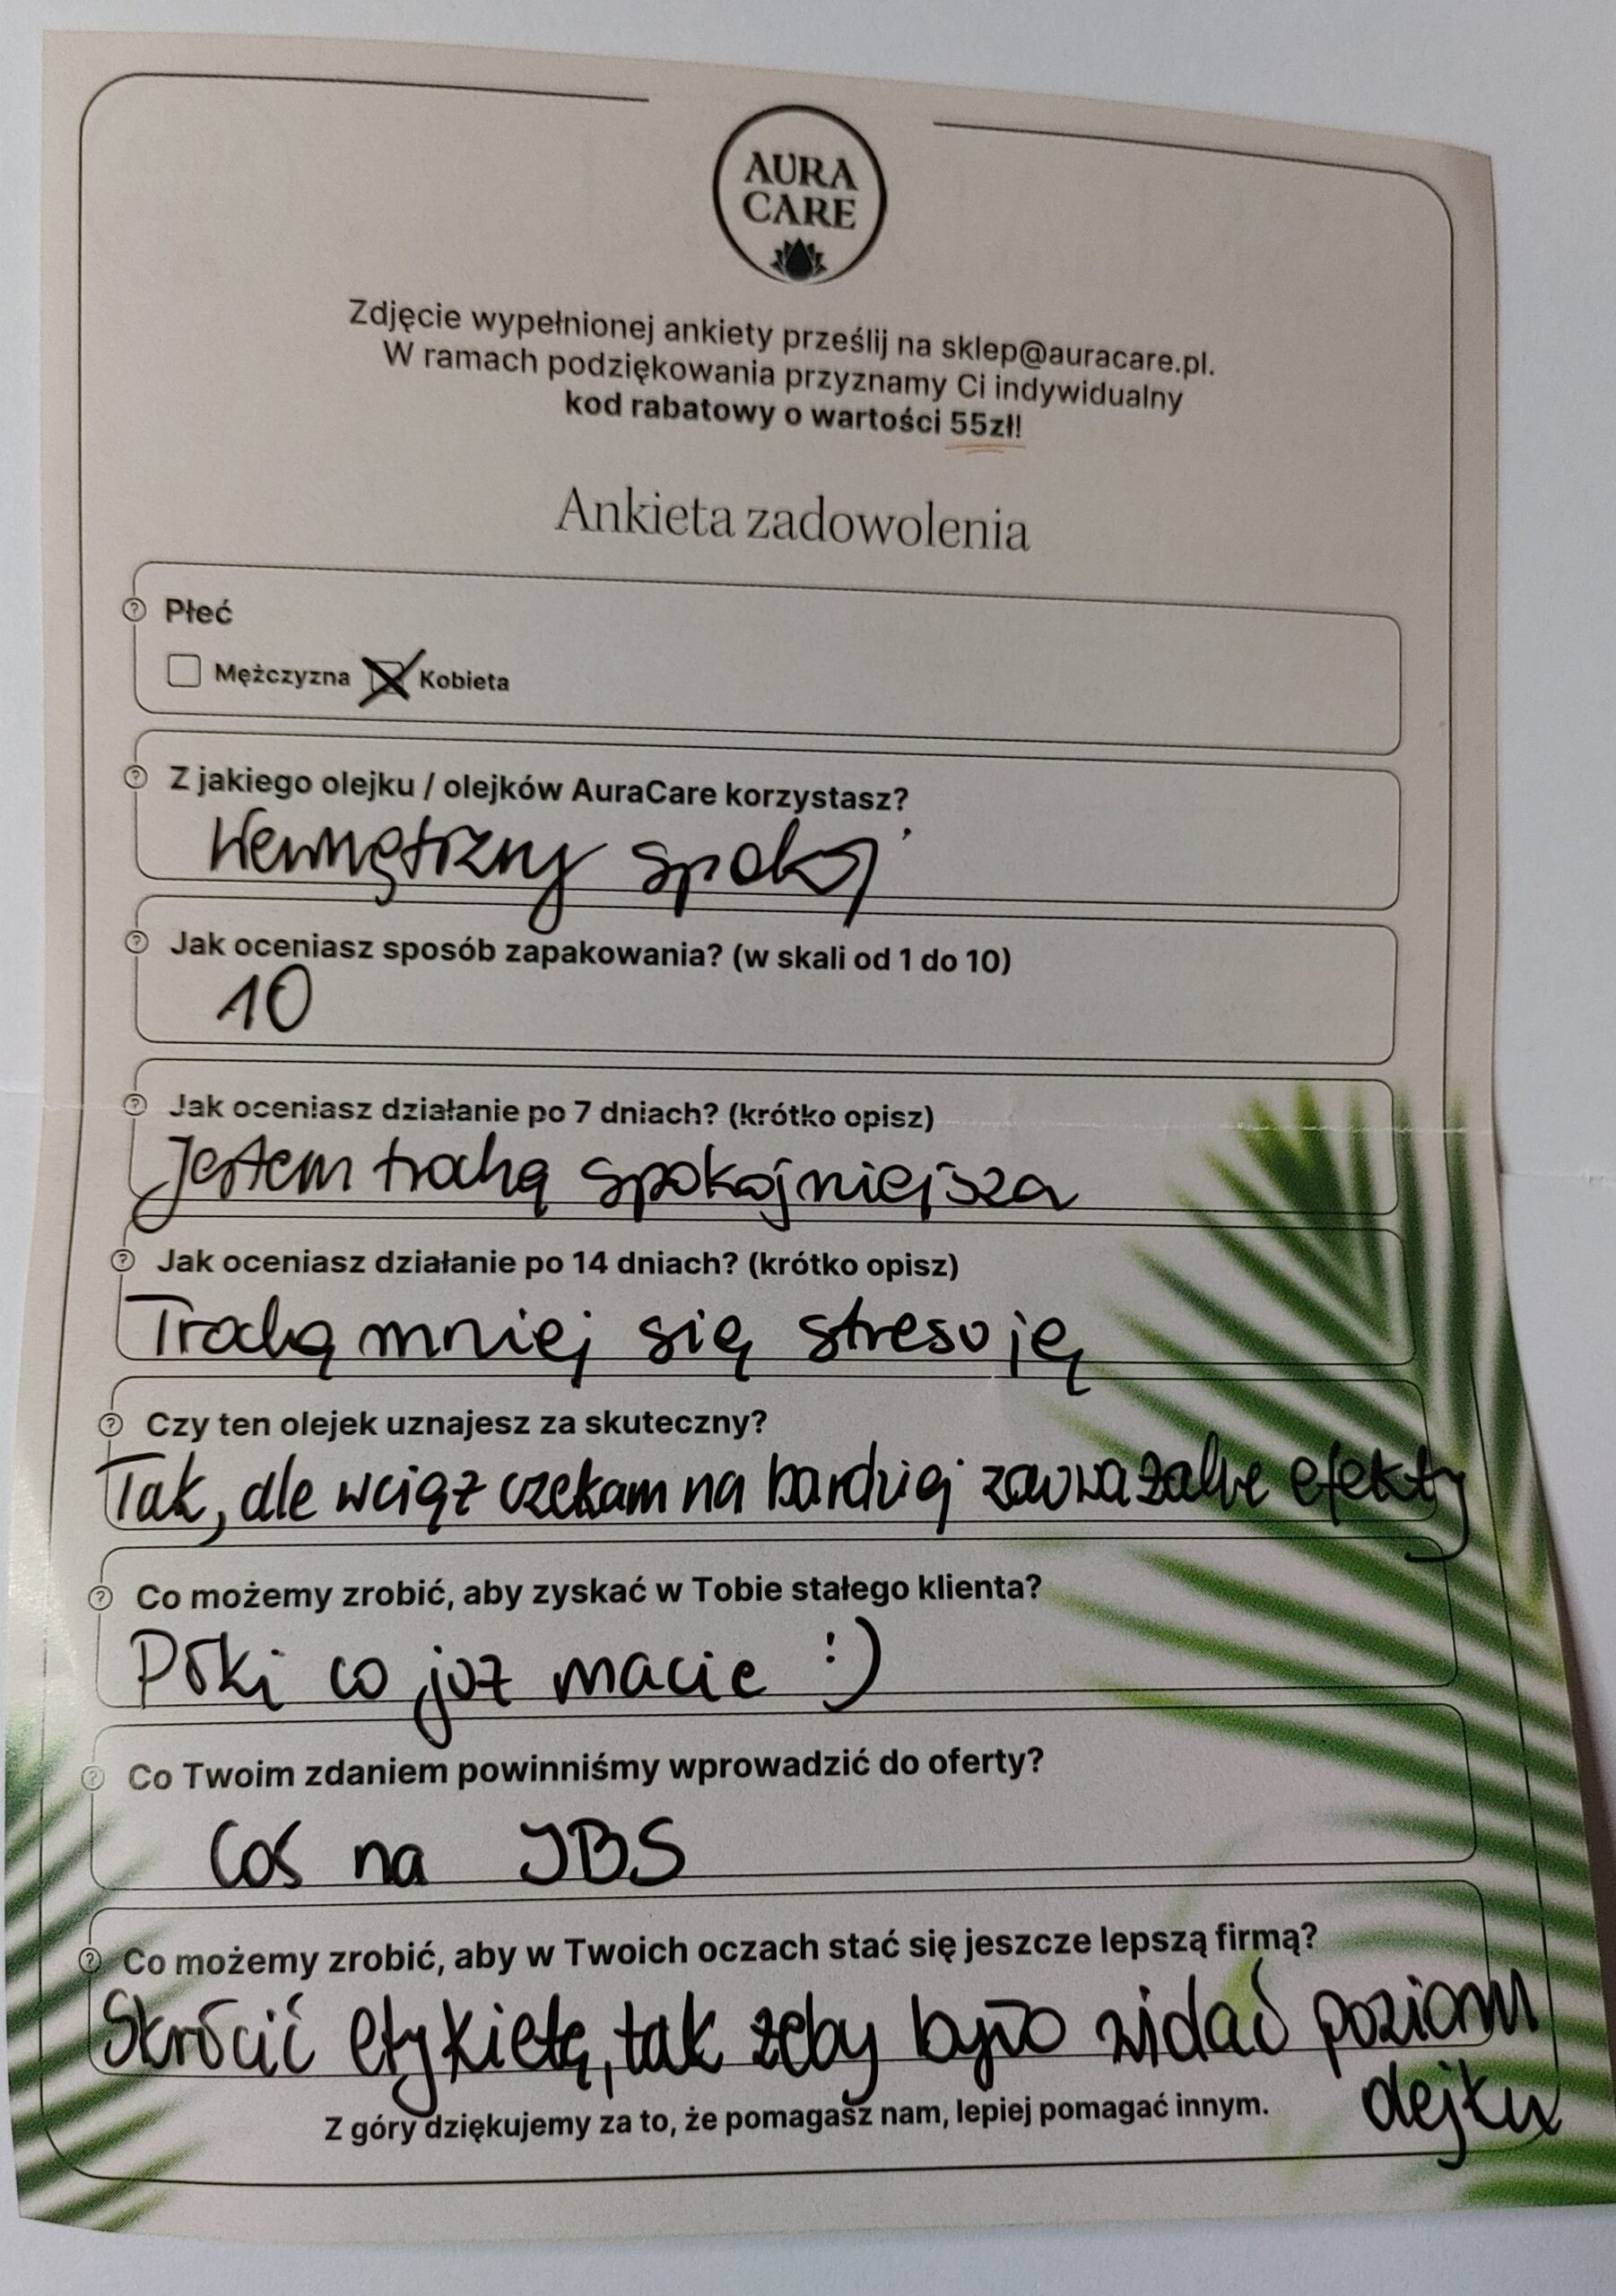 AURA
CARE
Zdjęcie wypełnionej ankiety prześlij na sklep@auracare.pl.
W ramach podziękowania przyznamy Ci indywidualny
kod rabatowy o wartości 55zł!
Ankieta zadowolenia
Płeć
Mężczyzna Kobieta
Z jakiego olejku / olejków AuraCare korzystasz?
Wewnętrzny spokój
Jak oceniasz sposób zapakowania? (w skali od 1 do 10)
10
Jak oceniasz działanie po 7 dniach? (krótko opisz)
Jestem trochę spokojniejsza
Jak oceniasz działanie po 14 dniach? (krótko opisz)
Trochę mniej się stresuję
Czy ten olejek uznajesz za skuteczny?
Tak, ale wciąż czekam na bardziej zauważalne efekty
Co możemy zrobić, aby zyskać w Tobie stałego klienta?
Póki co już macie :)
Co Twoim zdaniem powinniśmy wprowadzić do oferty?
Coś na JBS
Co możemy zrobić, aby w Twoich oczach stać się jeszcze lepszą firmą?
Skrócić etykietę, tak żeby było widać poziom
olejku
Z góry dziękujemy za to, że pomagasz nam, lepiej pomagać innym.